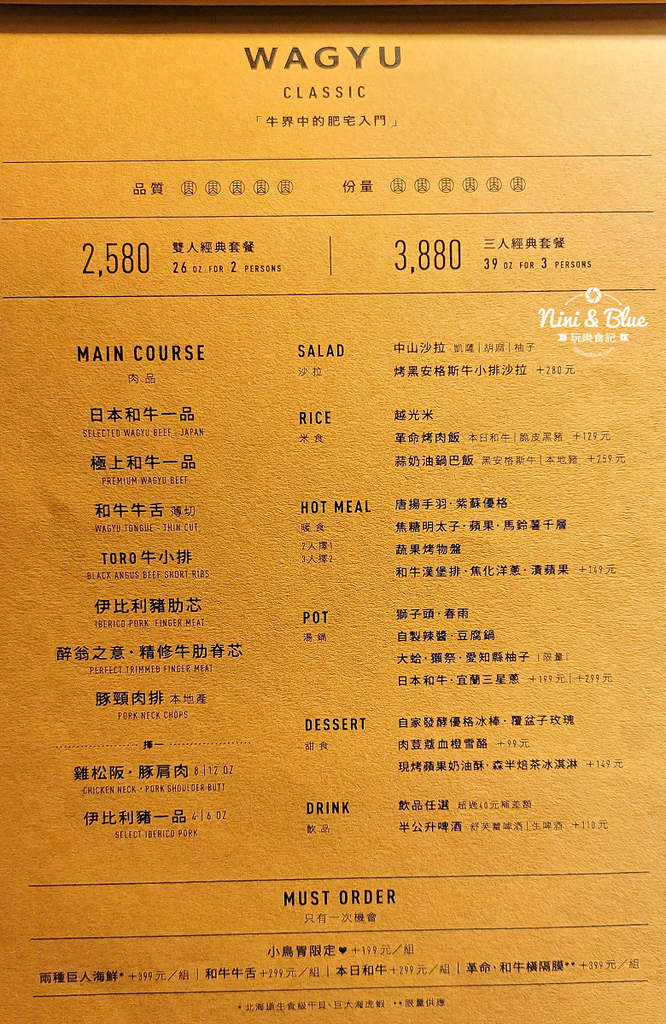 WAGYU
CLASSIC
「牛界中的肥宅入門」
品質 肉肉肉肉肉 份量 肉肉肉肉肉肉
2,580 雙人經典套餐
26 OZ FOR 2 PERSONS
3,880 三人經典套餐
39 OZ FOR 3 PERSONS
Nini & Blue
玩樂食記
MAIN COURSE
肉品
日本和牛一品
SELECTED WAGYU BEEF - JAPAN
極上和牛一品
PREMIUM WAGYU BEEF
和牛牛舌 薄切
WAGYU TONGUE - THIN CUT
TORO牛小排
BLACK ANGUS BEEF SHORT RIBS
伊比利豬肋芯
IBERICO PORK FINGER MEAT
醉翁之意·精修牛肋脊芯
PERFECT TRIMMED FINGER MEAT
豚頸肉排 本地產
PORK NECK CHOPS
擇一
雞松阪·豚肩肉 8|12 OZ
CHICKEN NECK·PORK SHOULDER BUTT
伊比利豬一品 4|6 OZ
SELECT IBERICO PORK
SALAD
沙拉
中山沙拉 凱薩|胡麻|柚子
烤黑安格斯牛小排沙拉 +280元
RICE
米食
越光米
革命烤肉飯 本日和牛|脆皮黑豬 +129元
蒜奶油鍋巴飯 黑安格斯牛|本地豬 +259元
HOT MEAL
暖食
2人擇1
3人擇2
唐揚手羽·紫蘇優格
焦糖明太子·蘋果·馬鈴薯千層
蔬果烤物盤
和牛漢堡排·焦化洋蔥·漬蘋果 +149元
POT
湯鍋
獅子頭·春雨
自製辣醬·豆腐鍋
大蛤·獺祭·愛知縣柚子 (限量)
日本和牛·宜蘭三星蔥 +199元|+299元
DESSERT
甜食
自家發酵優格冰棒·覆盆子玫瑰
肉荳蔻血橙雪酪 +99元
現烤蘋果奶油酥·森半焙茶冰淇淋 +149元
DRINK
飲品
飲品任選 超過40元補差額
半公升啤酒 舒芙蕾啤酒|生啤酒 +110元
MUST ORDER
只有一次機會
小鳥胃限定♥ +199元/組
兩種巨人海鮮* +399元/組 | 和牛牛舌 +299元/組 | 本日和牛 +299元/組 | 革命·和牛橫隔膜** +399元/組
*北海道生食級干貝、巨大海虎蝦 **限量供應